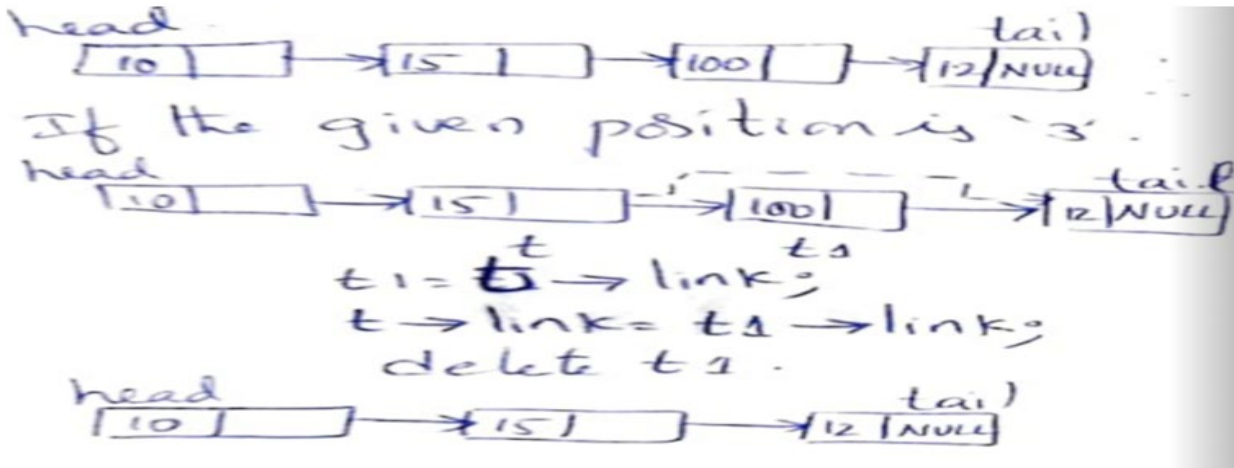 head tail
10 15 100 12 NULL
If the given position is '3'.
head tail
10 15 100 12 NULL
t t1
t1 = t → link;
t → link = t1 → link;
delete t1.
head tail
10 15 12 NULL